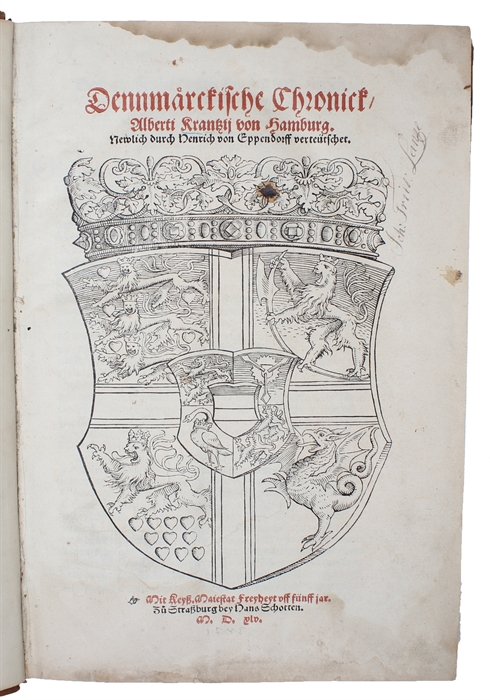 Dennmårckische Chronick/
Alberti Krantzij von Hamburg.
Newlich durch Henrich von Eppendorff verteütschet.
Joh: Frid:
Mit Keyß. Maiestat Freyheyt vff fünff jar.
Zů Straßburg bey Hans Schotten.
M. D. xlv.